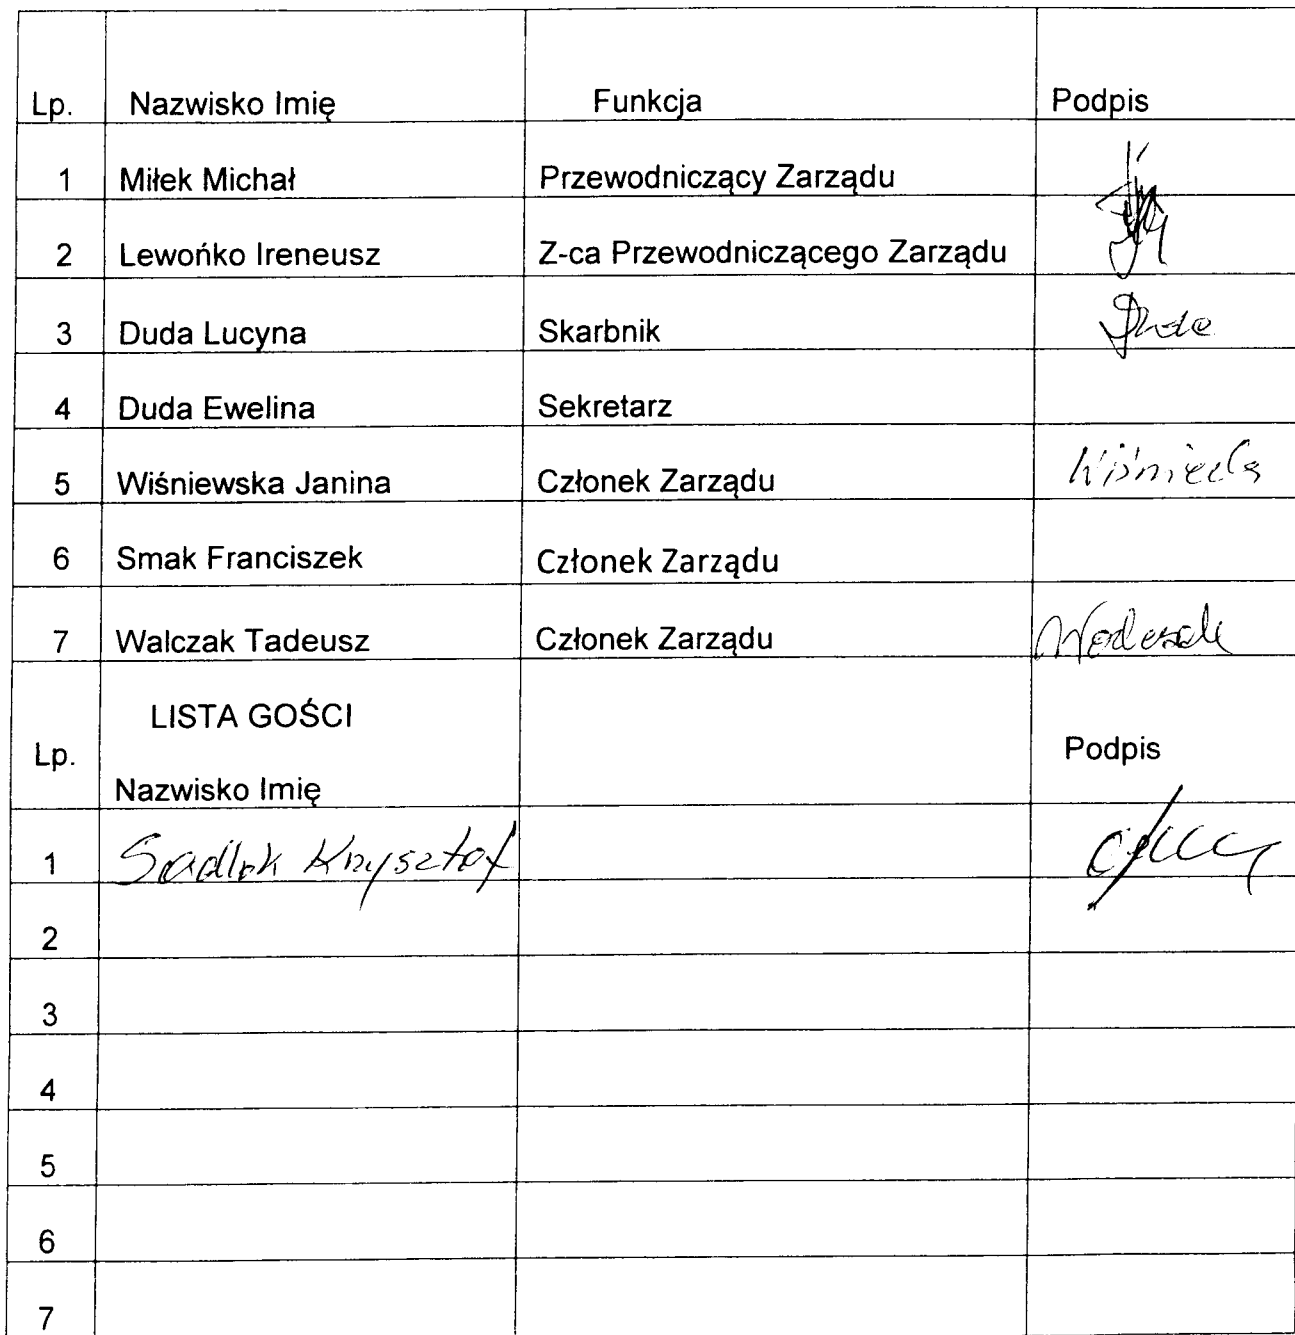 Lp. Nazwisko Imię Funkcja Podpis
1 Miłek Michał Przewodniczący Zarządu
2 Lewońko Ireneusz Z-ca Przewodniczącego Zarządu
3 Duda Lucyna Skarbnik
4 Duda Ewelina Sekretarz
5 Wiśniewska Janina Członek Zarządu
6 Smak Franciszek Członek Zarządu
7 Walczak Tadeusz Członek Zarządu
LISTA GOŚCI
Lp. Podpis
Nazwisko Imię
1 Sadlok Krzysztof
2
3
4
5
6
7